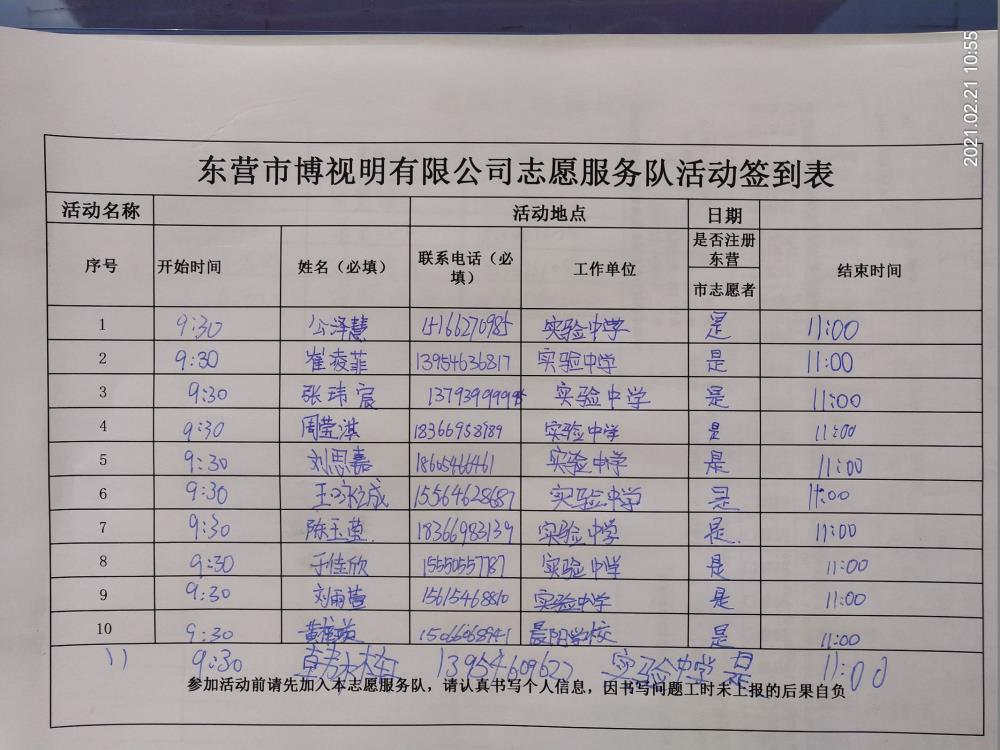 2021.02.21 10:55
东营市博视明有限公司志愿服务队活动签到表
活动名称 活动地点 日期
序号 开始时间 姓名（必填） 联系电话（必填） 工作单位 是否注册东营市志愿者 结束时间
1 9:30 公泽慧 15166270985 实验中学 是 11:00
2 9:30 崔凌菲 13954636817 实验中学 是 11:00
3 9:30 张玮宸 实验中学 是 11:00
4 9:30 周莹淇 18366958789 实验中学 是 11:00
5 9:30 刘思嘉 18605466461 实验中学 是 11:00
6 9:30 15564628687 实验中学 是 11:00
7 9:30 陈玉莹 18366983139 实验中学 是 11:00
8 9:30 于佳欣 15550557787 实验中学 是 11:00
9 9:30 刘雨萱 15615468810 实验中学 是 11:00
10 9:30 15066068941 晨阳学校 是 11:00
11 9:30 13954609627 实验中学 是 11:00
参加活动前请先加入本志愿服务队，请认真书写个人信息，因书写问题工时未上报的后果自负